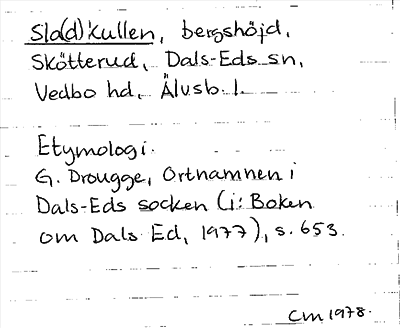 Sla(d)kullen, bergshöjd,
Skötterud, Dals-Eds sn,
Vedbo hd, Älvsb. l.
Etymologi.
G. Drougge, Ortnamnen i
Dals-Eds socken (i: Boken
om Dals Ed, 1977), s. 653.
Cm 1978.